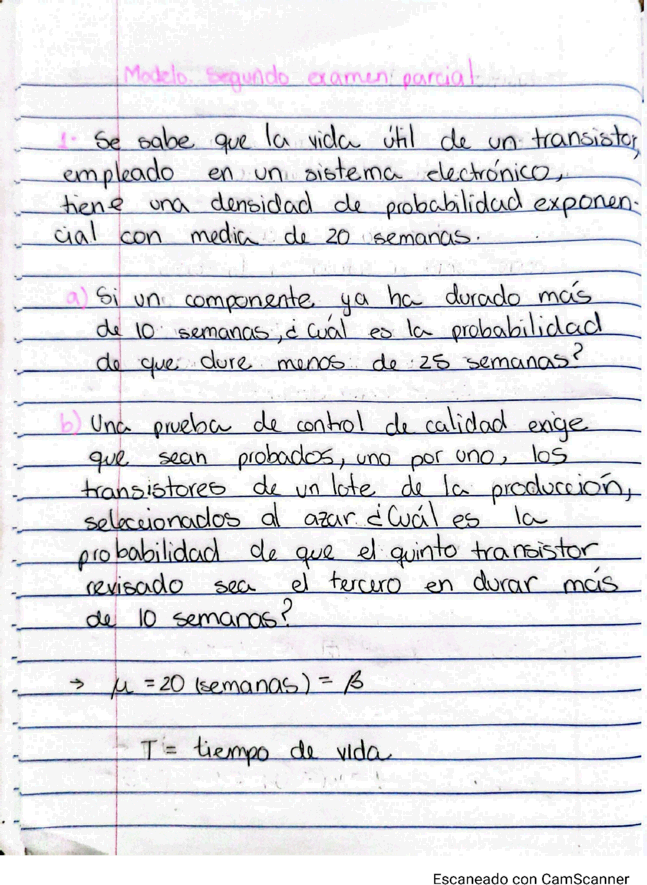 Modelo segundo examen parcial
1- Se sabe que la vida útil de un transistor,
empleado en un sistema electrónico,
tiene una densidad de probabilidad exponen-
cial con media de 20 semanas.
a) Si un componente ya ha durado más
de 10 semanas, ¿Cuál es la probabilidad
de que dure menos de 25 semanas?
b) Una prueba de control de calidad exige
que sean probados, uno por uno, los
transistores de un lote de la producción,
seleccionados al azar ¿Cuál es la
probabilidad de que el quinto transistor
revisado sea el tercero en durar más
de 10 semanas?
→ μ = 20 (semanas) = β
T = tiempo de vida
Escaneado con CamScanner